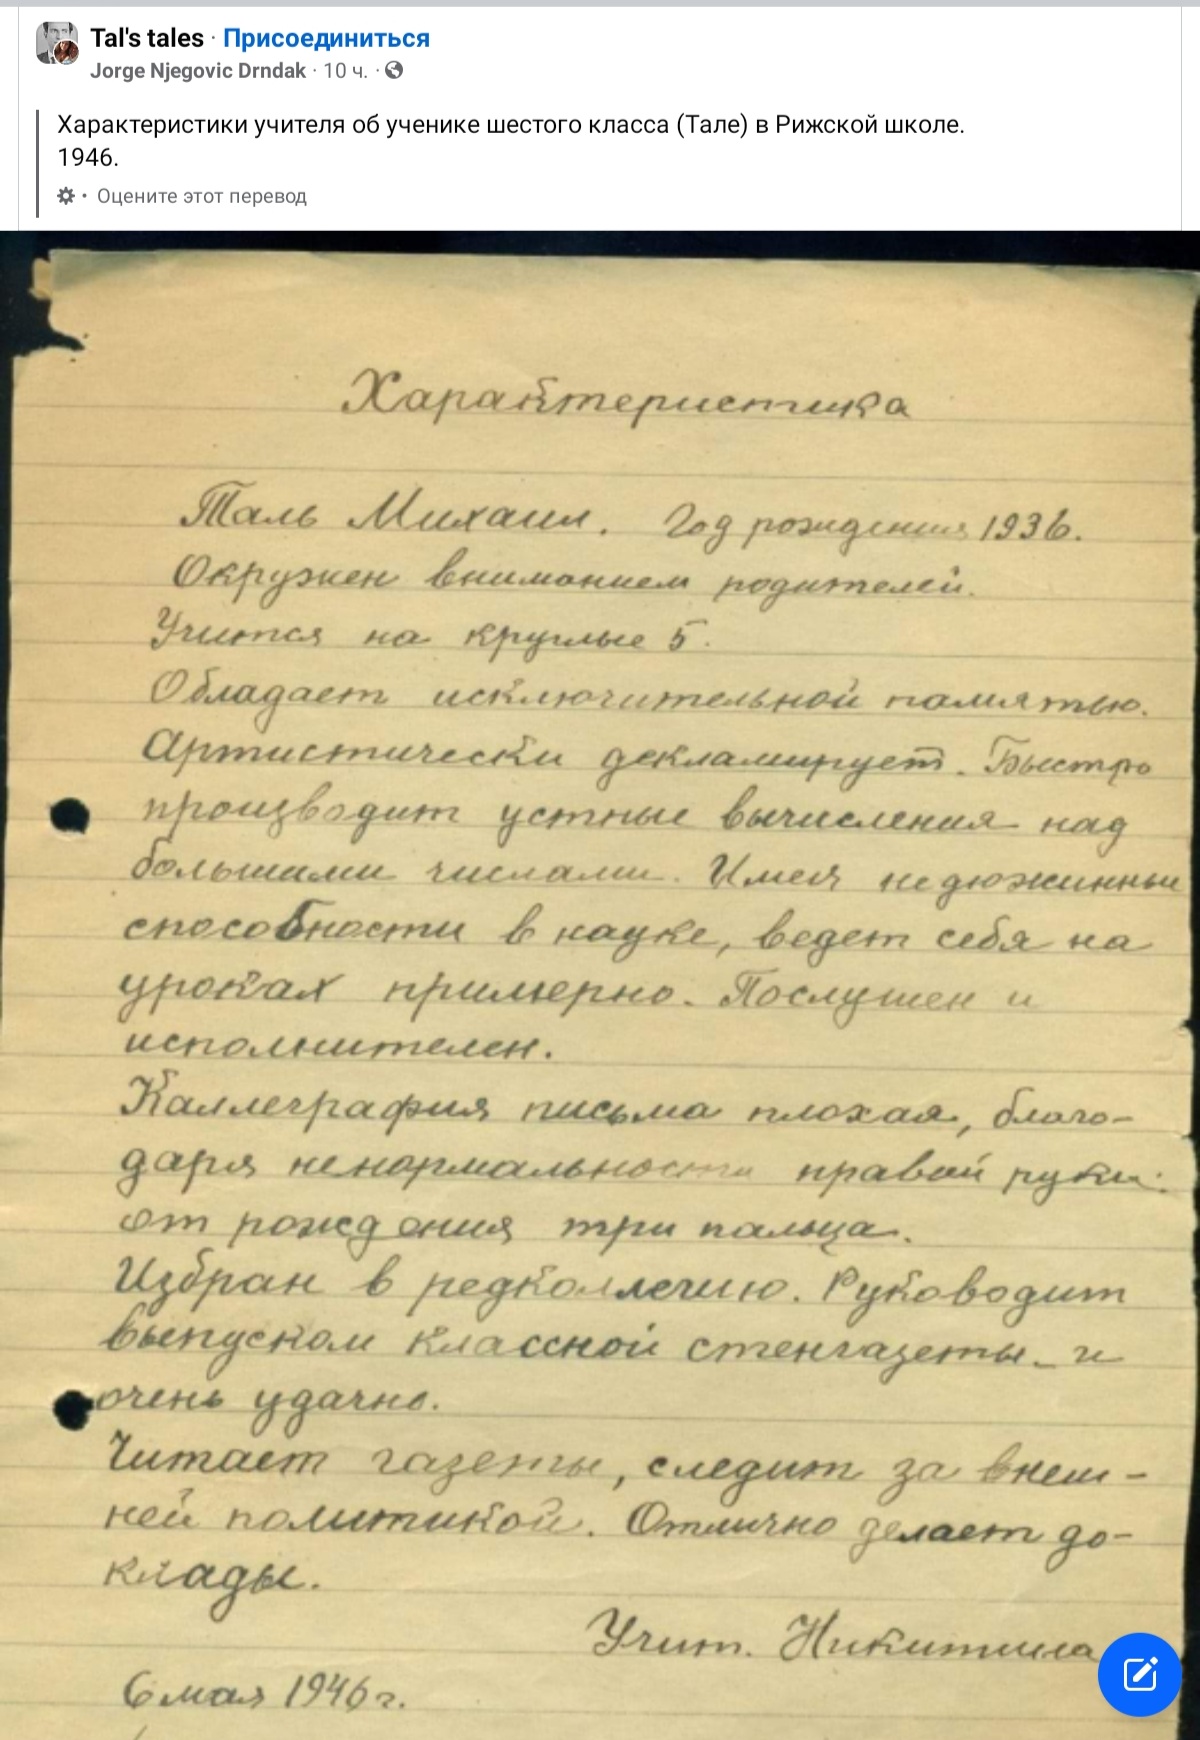 Tal's tales · Присоединиться
Jorge Njegovic Drndak · 10 ч. ·
Характеристики учителя об ученике шестого класса (Тале) в Рижской школе.
1946.
· Оцените этот перевод
Характеристика
Таль Михаил. Год рождения 1936.
Окружен вниманием родителей.
Учится на круглые 5.
Обладает исключительной памятью.
Артистически декламирует. Быстро
производит устные вычисления над
большими числами. Имея недюжинные
способности в науке, ведет себя на
уроках примерно. Послушен и
исполнителен.
Каллеграфия письма плохая, благо-
даря ненормальности правой руки:
от рождения три пальца.
Избран в редколлегию. Руководит
выпуском классной стенгазеты и
очень удачно.
Читает газеты, следит за внеш-
ней политикой. Отлично делает до-
клады.
Учит. Никитина
6 мая 1946 г.